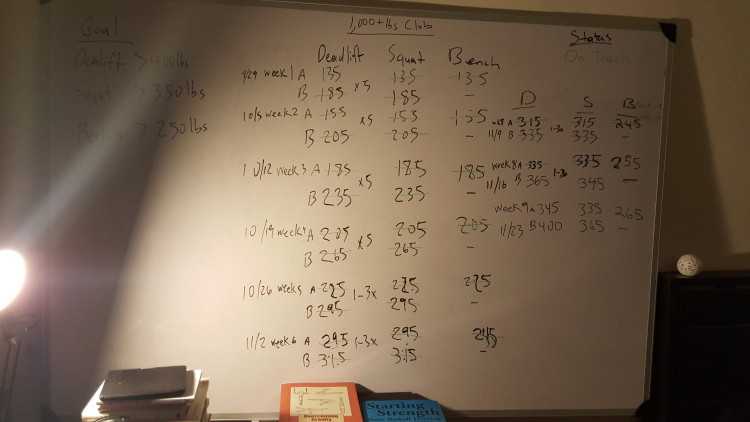 1,000+ lbs Club
Goal
Deadlift > 400 lbs
Squat > 350 lbs
250 lbs
Status
On Track
Deadlift Squat Bench
9/29 week 1 A 135 x5 135 135
B 185 185 -
10/5 week 2 A 155 x5 155 155
B 205 205 -
10/12 week 3 A 185 x5 185 185
B 235 235 -
10/19 week 4 A 205 x5 205 205
B 265 265 -
10/26 week 5 A 225 1-3x 225 225
B 295 295 -
11/2 week 6 A 295 1-3x 295
B 315 315 -
D S B
A 315 1-3x 315 245
11/9 B 335 335 -
week 8 A 335 1-3x 335 255
11/16 B 365 345 -
week 9 A 345 335 265
11/23 B 400 365 -
Starting
Strength